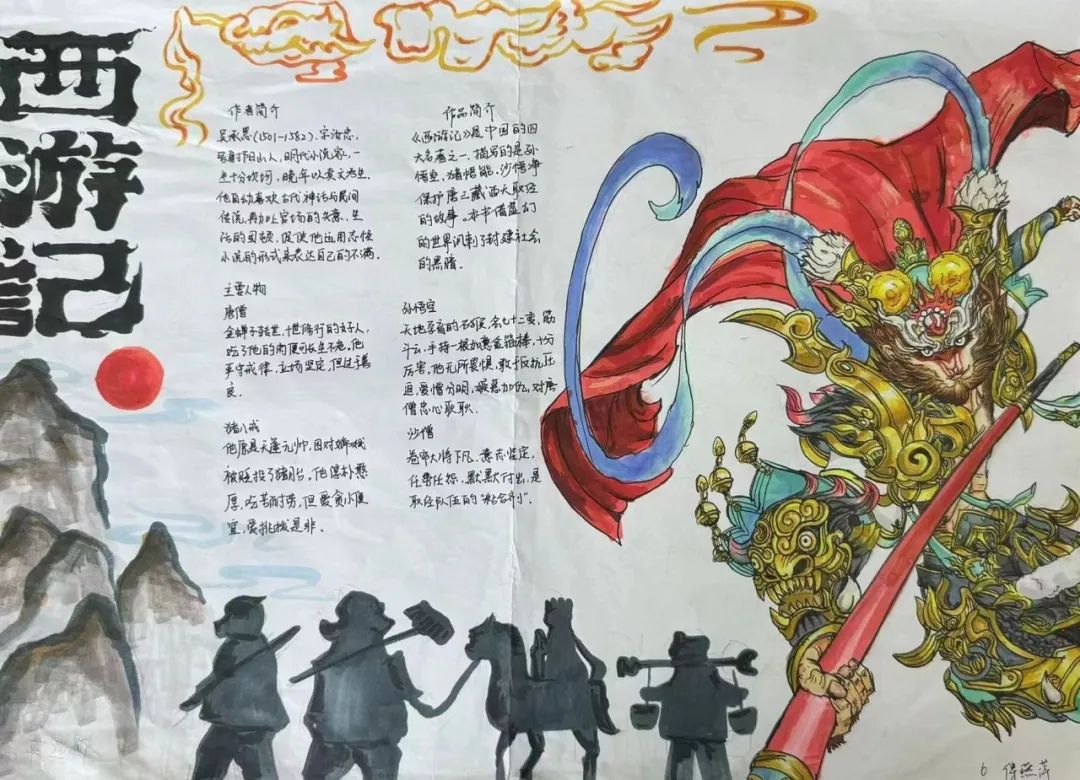 西游记
作者简介
吴承恩(1501-1582),字汝忠,
号射阳山人,明代小说家,一
生十分坎坷,晚年以卖文为生,
他自幼喜欢古代神话与民间
传说,再加上官场的失意、生
活的困顿,促使他运用志怪
小说的形式来表达自己的不满。
作品简介
《西游记》是中国的四
大名著之一,描写的是孙
悟空、猪悟能、沙悟净
保护唐三藏西天取经
的故事。本书借虚幻
的世界讽刺了封建社会
的黑暗。
主要人物
唐僧
金蝉子转世,十世修行的好人,
吃了他的肉便可长生不老,他
严守戒律,立场坚定,但过于善
良。
猪八戒
他原是天蓬元帅,因对嫦娥
被贬投了猪胎。他憨朴憨
厚,吃苦耐劳,但爱贪小便
宜,爱挑拨是非。
孙悟空
天地孕育的石猴,会七十二变,筋
斗云,手持一根如意金箍棒,十分
厉害,他无所畏惧,敢于反抗压
迫,爱憎分明,嫉恶如仇,对唐
僧忠心耿耿。
沙僧
卷帘大将下凡,意志坚定,
任劳任怨,默默付出,是
取经队伍的"粘合剂"。
6